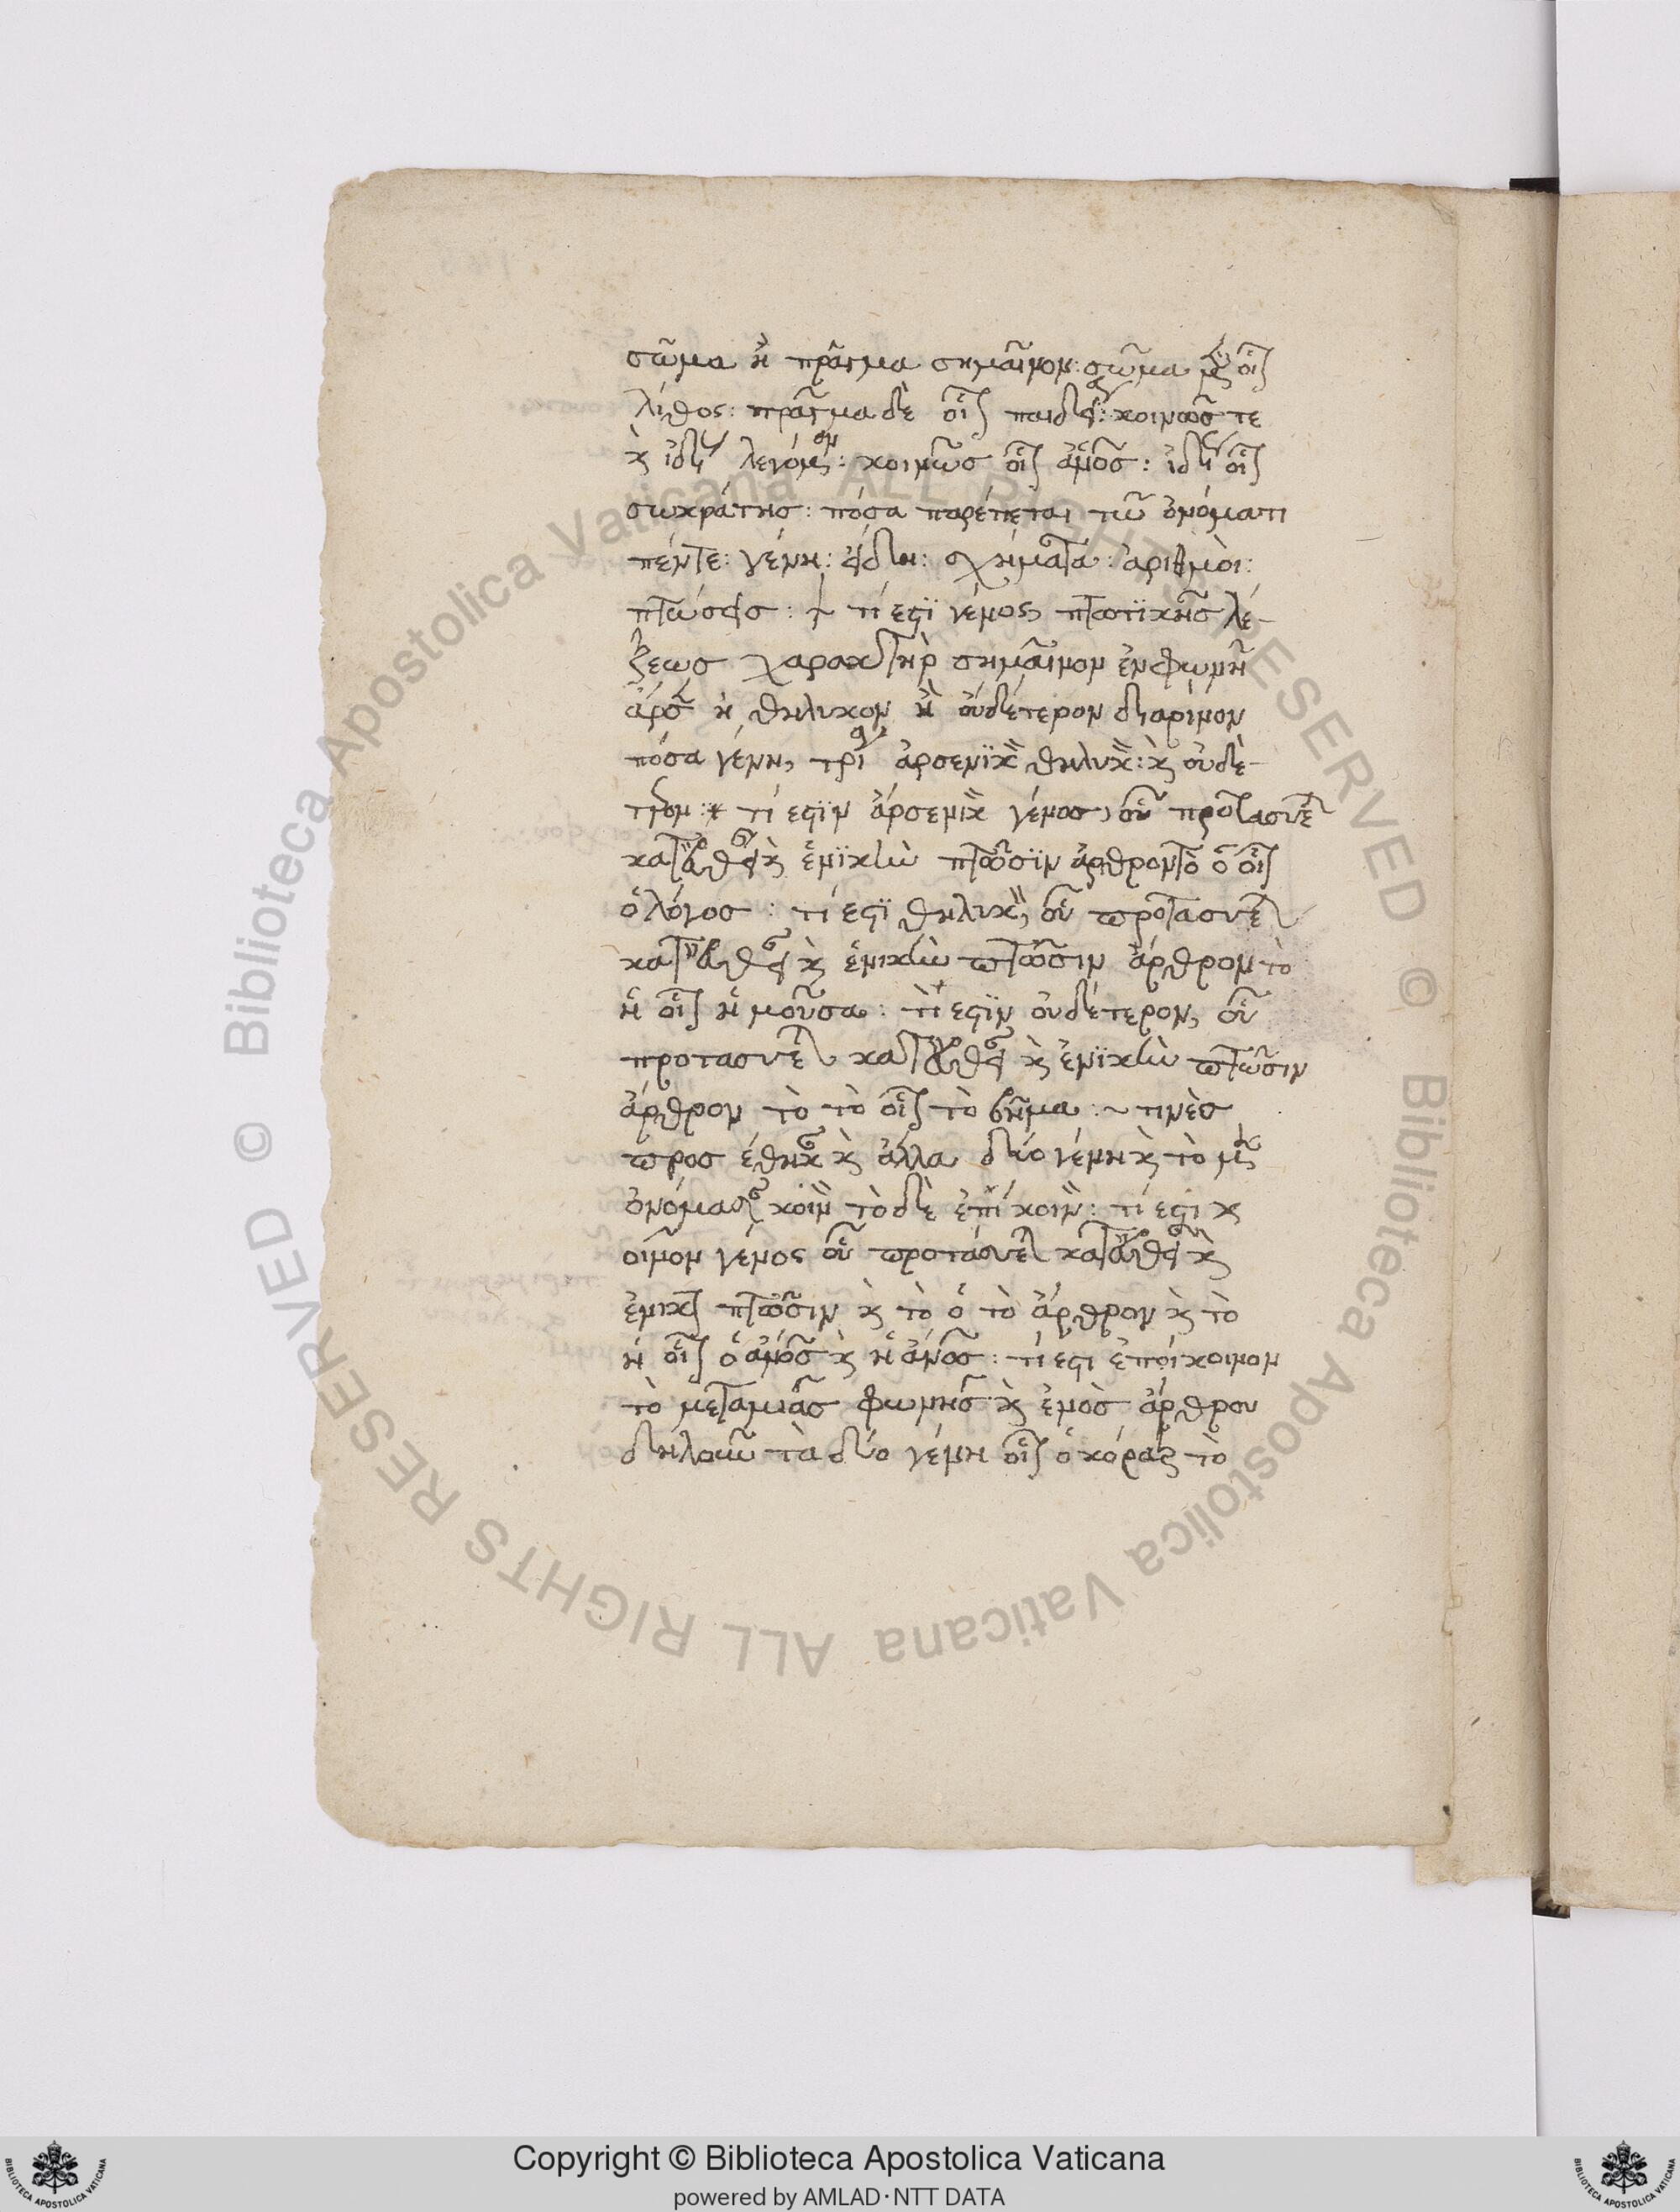 σῶμα ἢ πρᾶγμα σημαῖνον: σῶμα μὲν οἷον
λίθος: πρᾶγμα δὲ οἷον παιδεία: κοινῶς τε
καὶ ἰδίως λεγόμενον: κοινῶς οἷον ἄνος: ἰδίως οἷον
σωκράτης: πόσα παρέπεται τῶ ὀνόματι
πέντε: γένη: εἴδη: σχήματα: ἀριθμοὶ:
πτώσεις: τί ἐστϊ γένος, πτωτϊκῆς λέ-
ξεως χαρακτὴρ σημαῖνον ἐν φωνῆ
ἢ θηλυκον ἢ οὐδέτερον
πόσα γένη, τρία ἀρσενϊκὸν θηλυκὸν: καὶ οὐδέ-
τερον: τί ἐστϊν ἀρσενικὸν γένος, οὗ προτάσσεται
κατ' εὐθεῖαν καὶ ἑνϊκὴν πτῶσϊν ἄρθρον τὸ ὁ οἷον
ὁ λόγος: τί ἐστϊ θηλυκὸν, οὗ προτάσσεται
κατ' εὐθεῖαν καὶ ἑνικὴν πτῶσιν ἄρθρον τὸ
ἡ οἷον ἡ μοῦσα: τί ἐστϊν οὐδέτερον, οὗ
προτάσσεται κατ' εὐθεῖαν καὶ ἑνϊκὴν πτῶσιν
ἄρθρον τὸ τὸ οἷον τὸ βῆμα: τινὲς
προσέθηκαν καὶ ἄλλα δύο γένη καὶ τὸ μὲν
ὀνόμασαν κοινὸν τὸ δὲ ἐπίκοινον: τί ἐστι κ
οινον γένος οὗ προτάσσεται κατ' εὐθεῖαν καὶ
ἑνικὴν πτῶσιν καὶ τὸ ὁ τὸ ἄρθρον καὶ τὸ
ἡ οἷον ὁ ἄνος καὶ ἡ ἄνος: τί ἐστι ἐποίκοινον
τὸ μετὰ μιᾶς φωνῆς καὶ ἑνὸς ἄρθρου
δηλοῦν τὰ δύο γένη οἷον ὁ κόραξ τὸ
Copyright © Biblioteca Apostolica Vaticana
powered by AMLAD·NTT DATA